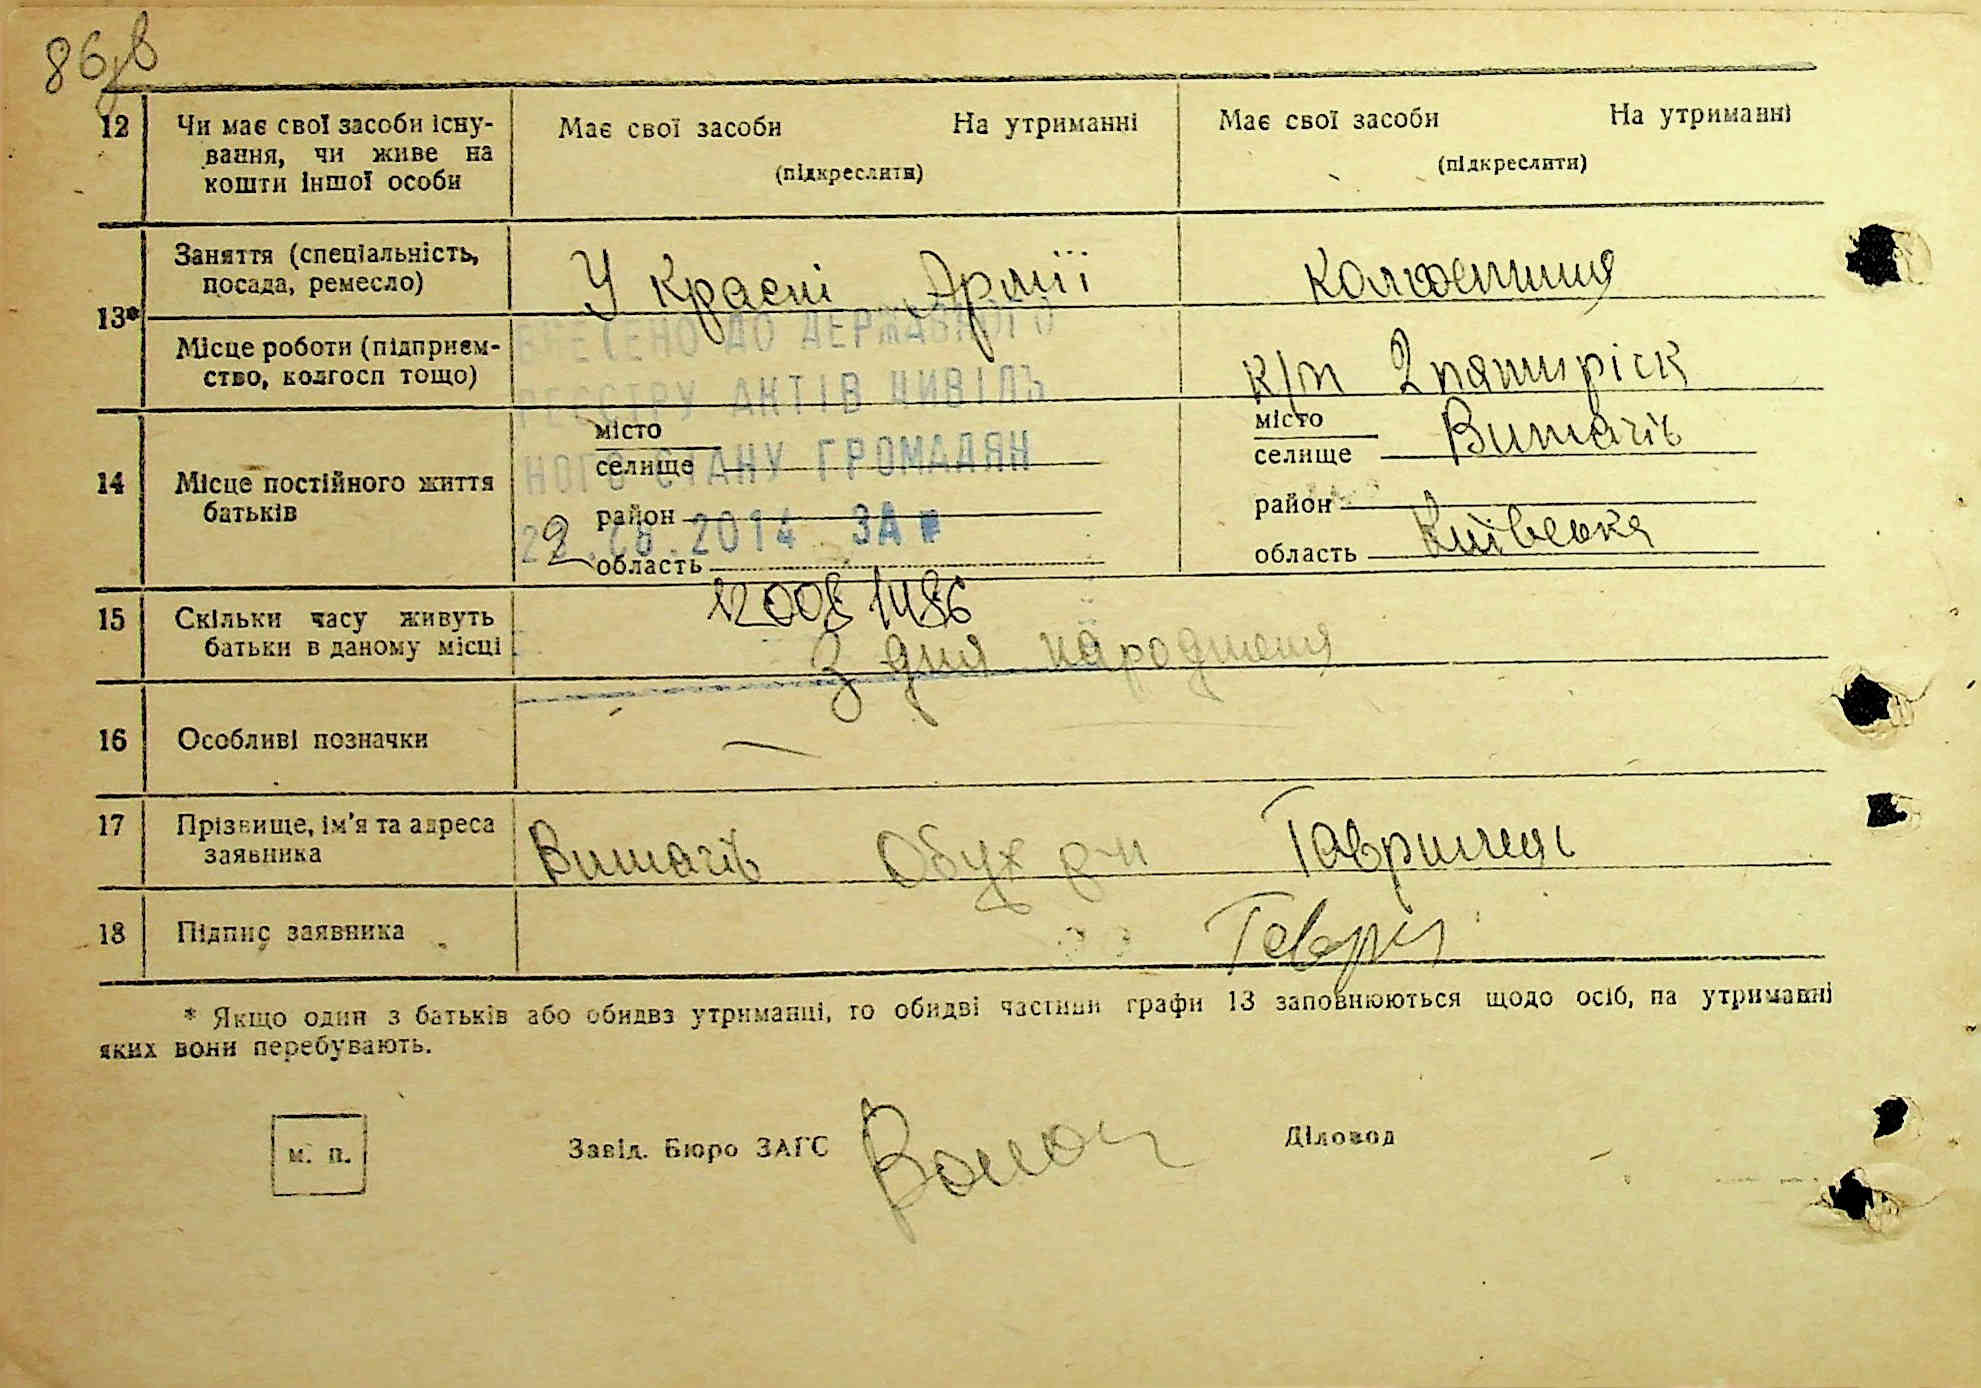 86
12 Чи має свої засоби існу-
вання, чи живе на
кошти іншої особи
Має свої засоби На утриманні
(підкреслити)
Має свої засоби На утриманні
(підкреслити)
13*
Заняття (спеціальність,
посада, ремесло)
У Красні Армії
колгоспниця
Місце роботи (підприєм-
ство, колгосп тощо)
к/п 2 пятиріск
ВНЕСЕНО ДО ДЕРЖАВНОГО
РЕЄСТРУ АКТІВ ЦИВІЛЬ
НОГО СТАНУ ГРОМАДЯН
2014 ЗА №
14 Місце постійного життя
батьків
місто
селище
район
область
місто
селище Витачів
район
область Київська
15 Скільки часу живуть
батьки в даному місці
З дня народження
16 Особливі позначки
17 Прізвище, ім'я та адреса
заявника
Витачів Обух р-н
18 Підпис заявника
* Якщо один з батьків або обидва утриманці, то обидві частини графи 13 заповнюються щодо осіб, на утриманні
яких вони перебувають.
м. п.
Завід. Бюро ЗАГС
Діловод